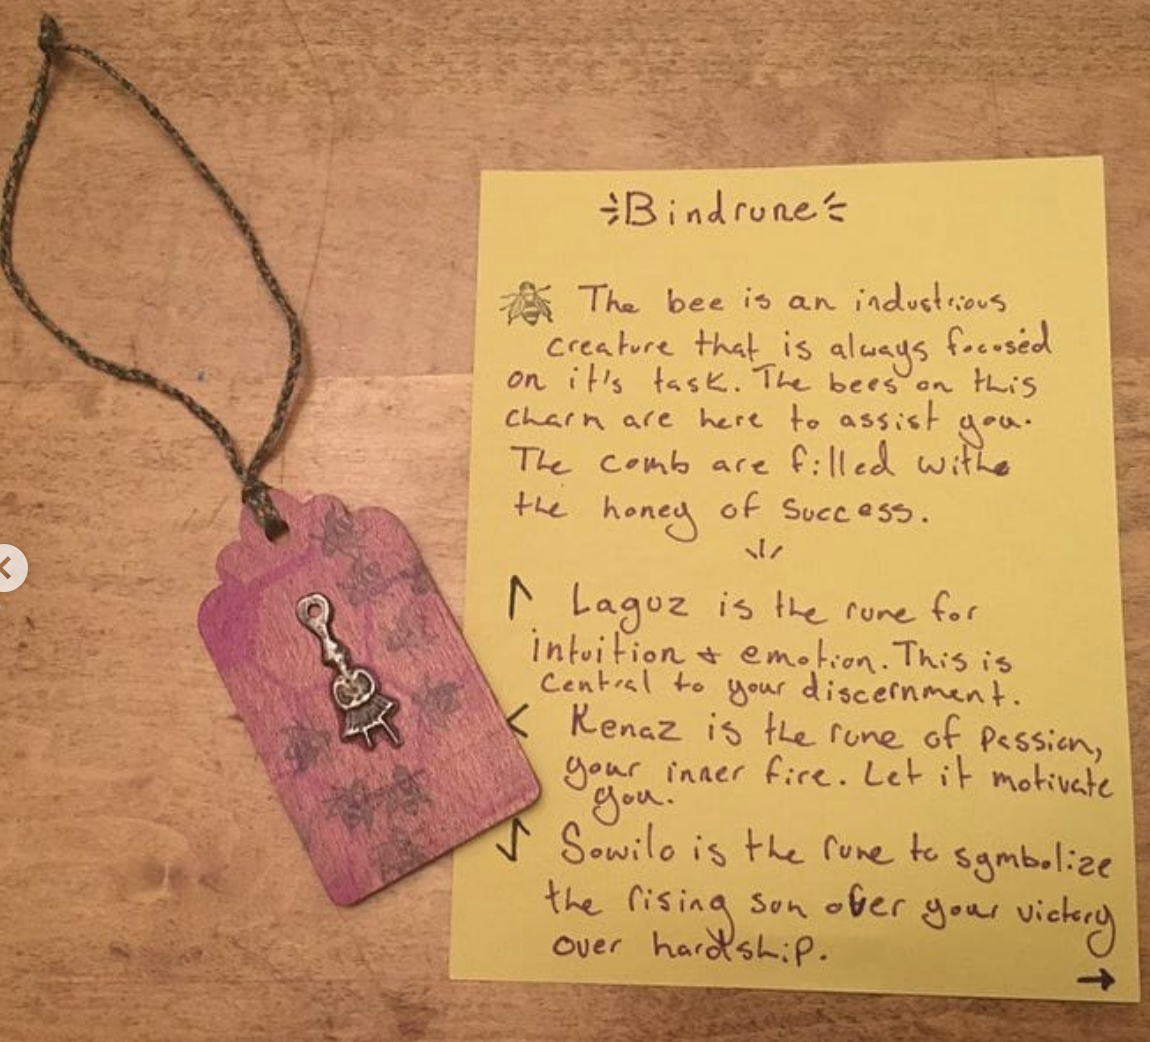 Bindrune
The bee is an industrious
creature that is always focused
on it's task. The bees on this
charm are here to assist you.
The comb are filled withe
the honey of success.
ᛚ Laguz is the rune for
intuition & emotion. This is
central to your discernment.
ᚲ Kenaz is the rune of passion,
your inner fire. Let it motivate
you.
ᛊ Sowilo is the rune to symbolize
the rising sun over your victory
over hardship.
→